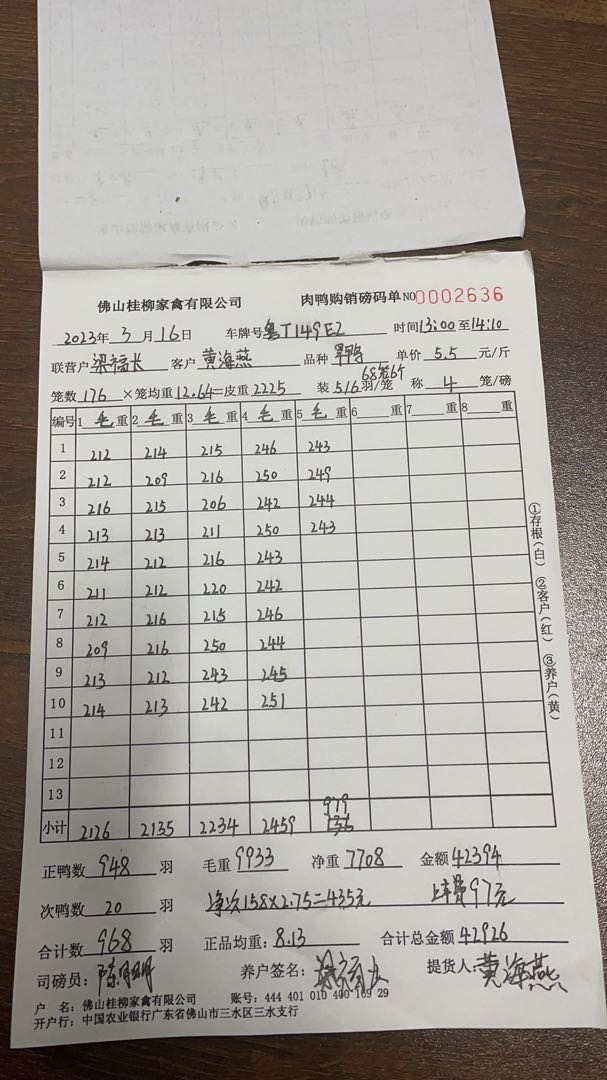 佛山桂柳家禽有限公司 肉鸭购销磅码单 NO0002636
2023年 3月16日 车牌号粤T149E2 时间13:00至14:10
联营户 梁福长 客户 黄海燕 品种 旱鸭 单价 5.5 元/斤
68笼6个
笼数 176 ×笼均重12.64=皮重2225 装 5/6 羽/笼 称 4 笼/磅
编号 1 毛 重 2 毛 重 3 毛 重 4 毛 重 5 毛 重 6 重 7 重 8 重
1 212 214 215 246 243
2 212 209 216 250 249
3 216 215 206 242 244
4 213 213 211 250 243
5 214 212 216 243
6 211 212 220 242
7 212 216 215 246
8 209 216 250 244
9 213 212 243 245
10 214 213 242 251
11
12
13
979
小计 2126 2135 2234 2459
正鸭数 948 羽 毛重 9933 净重 7708 金额 42394
次鸭数 20 羽 净次158×2.75=435元 上车费97元
合计数 968 羽 正品均重: 8.13 合计总金额 42926
司磅员: 陈明 养户签名: 梁福长 提货人: 黄海燕
户 名: 佛山桂柳家禽有限公司 账号: 444 401 010 400 169 29
开户行: 中国农业银行广东省佛山市三水区三水支行
①存根(白) ②客户(红) ③养户(黄)